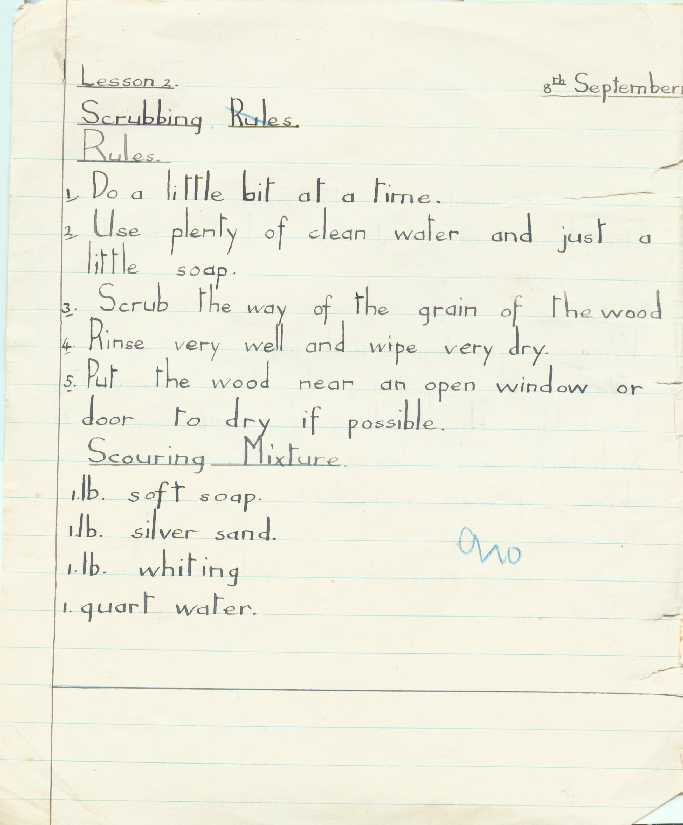 Lesson 2. 8th September
Scrubbing Rules.
Rules.
1. Do a little bit at a time.
2. Use plenty of clean water and just a
little soap.
3. Scrub the way of the grain of the wood
4. Rinse very well and wipe very dry.
5. Put the wood near an open window or
door to dry if possible.
Scouring Mixture.
1.lb. soft soap.
1.lb. silver sand.
1.lb. whiting
1. quart water.